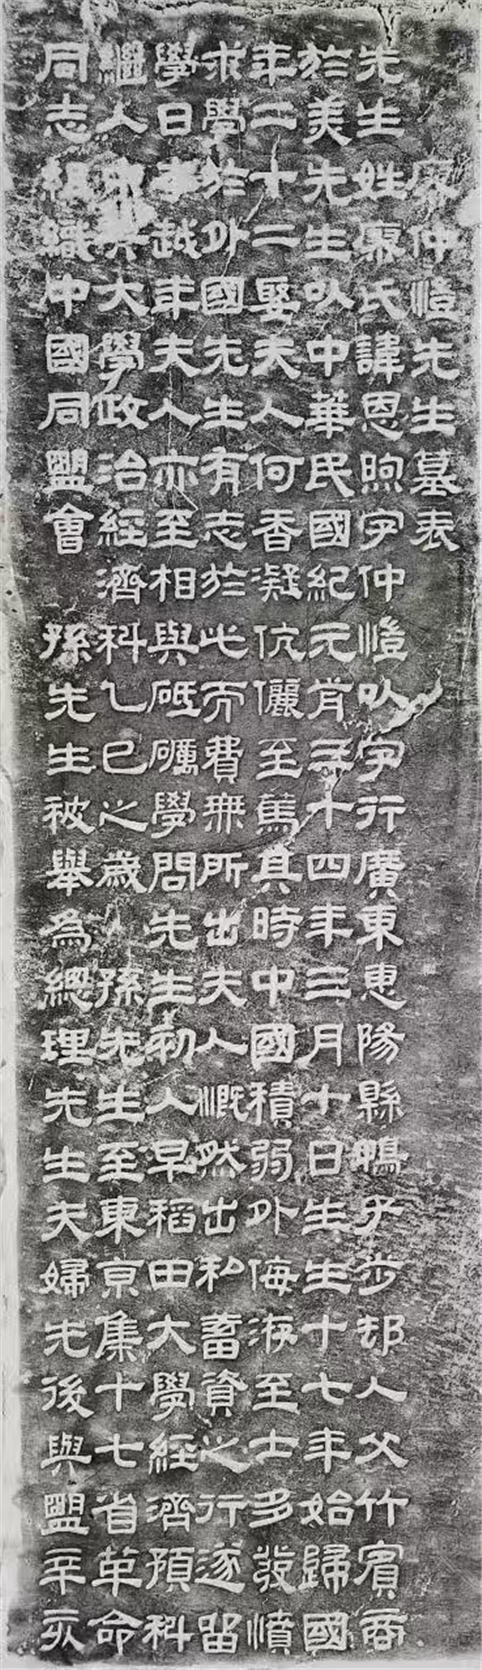 廖仲愷先生墓表
先生姓廖氏諱恩煦字仲愷以字行廣東惠陽縣鴨子步邨人父竹賓商
於美先生以中華民國紀元前三十四年三月十日生生十七年始歸國
年二十二娶夫人何香凝伉儷至篤其時中國積弱外侮洊至士多發憤
求學於外國先生有志於此而費無所出夫人慨然出私蓄資之行遂留
學日本越年夫人亦至相與砥礪學問先生初入早稻田大學經濟預科
繼入中央大學政治經濟科乙巳之歲 孫先生至東京集十七省革命
同志組織中國同盟會 孫先生被舉為總理先生夫婦先後與盟辛亥